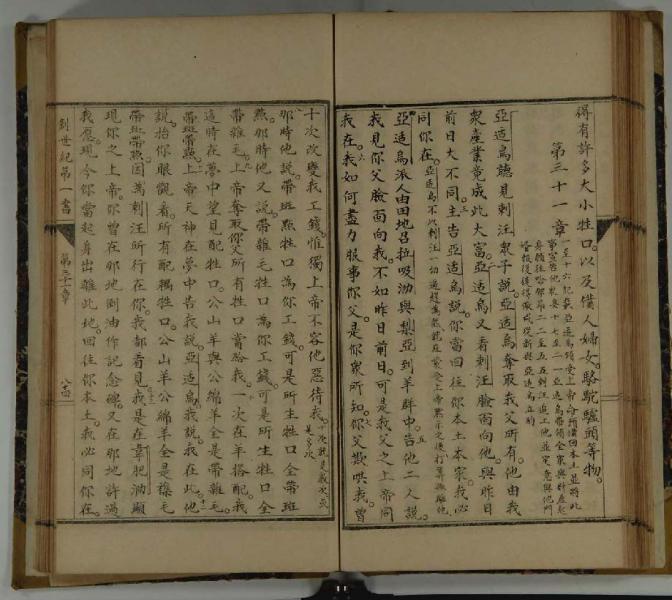 得有許多大小牲口以及僕人婦女駱駝驢頭等物
第三十一章
亞适烏聽見剌汪衆子説亞适烏奪取我父所有他由我
衆產業竟成此大富亞适烏又看剌汪臉面向他與昨日
前日大不同主告亞适烏説你當回往你本土本家我必
同你在
亞适烏派人由田地召拉吸泐與梨亞到羊群中告他二人説
我見你父臉面向我不如昨日前日可是我父之上帝同
我在我如何盡力服事你父是你衆所知你父欺哄我曾
十次改變我工錢惟獨上帝不容他惡待我
那時他説帶斑點牲口為你工錢可是所生牲口全帶斑
㸃那時他又説帶雜毛牲口為你工錢可是所生牲口全
帶雜毛上帝奪取你父所有牲口賞賜我一次在羊搭配
這時在夢中望見配牲口公山羊與公綿羊全是帶雜毛
帶斑㸃上帝天神在夢中告我説亞适烏我説我在此他
説抬你眼觀看所有配獨牲口公山羊公綿羊全是雜毛
帶斑㸃因為剌汪所行在你我都看見我是在韋肥泐顯
現你之上帝你曾在那地倒油作記念碑又在那地許過
我愿現今你當起身出離此地回往你本土我必同你在
創世紀第一書
第三十一章